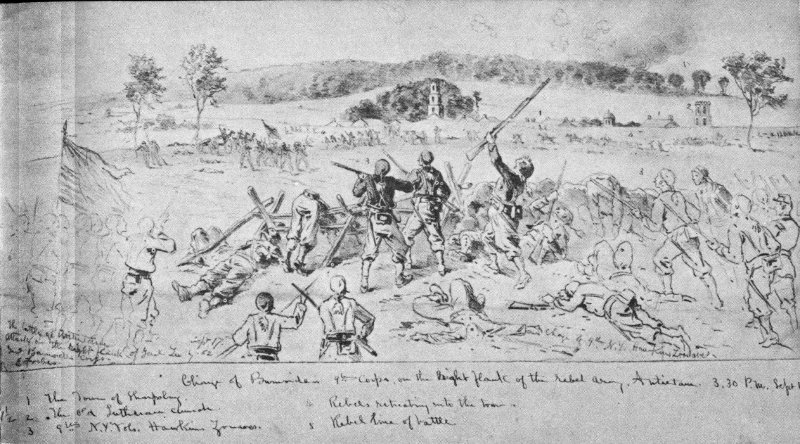 The battle of Antietam
Attack on the Right flank of Genl Lee by
Genl Burnside Corps
E Forbes
Sept 17
Charge of 9th N.Y. Hawkins Zouaves.
Charge of Burnsides 9th Corps, on the Right flank of the Rebel Army, Antietam 3.30 P.m. Sept 1
1 The Town of Sharpsburg
2 The Old Lutheran church
3 9th N.Y. Vols. Hawkins Zouaves.
4 Rebels retreating into the town.
5 Rebel line of battle